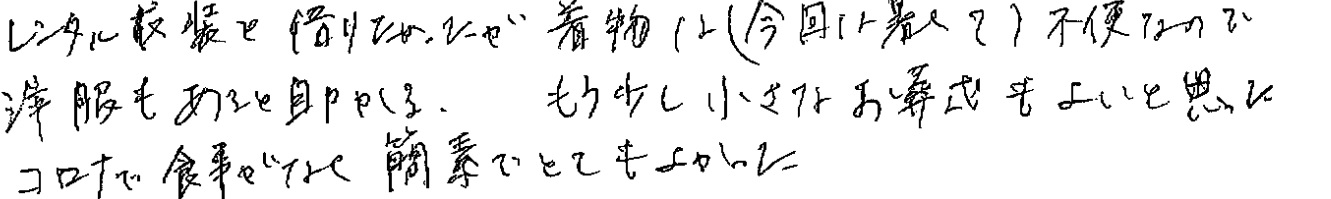 レンタル衣装を借りたかったが着物は(今回は暑くて)不便なので
洋服もあると助かる。 もう少し小さなお葬式もよいと思った
コロナで食事がなく簡素でとてもよかった